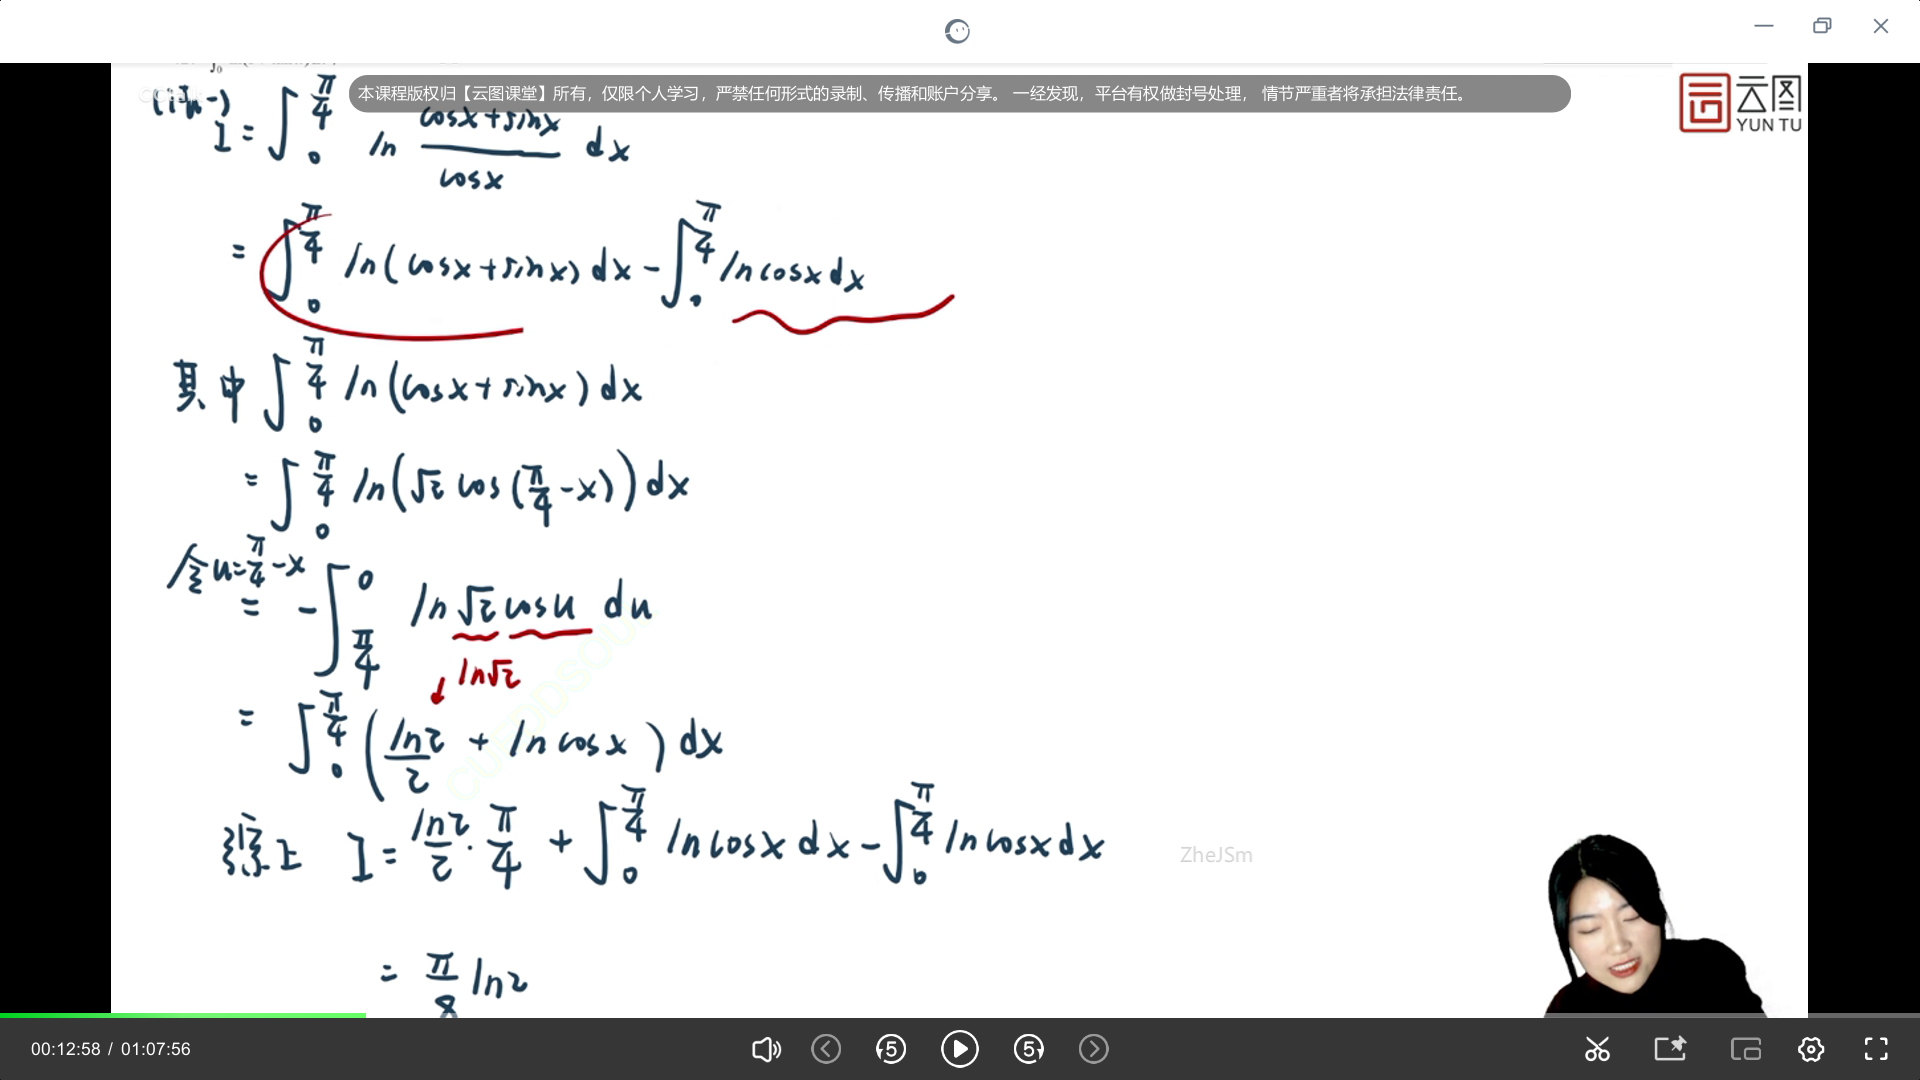 本课程版权归【云图课堂】所有，仅限个人学习，严禁任何形式的录制、传播和账户分享。 一经发现，平台有权做封号处理， 情节严重者将承担法律责任。
云图
YUN TU
I = ∫_0^{π/4} ln (cosx+sinx)/cosx dx
= ∫_0^{π/4} ln(cosx+sinx)dx - ∫_0^{π/4} ln cosx dx
其中 ∫_0^{π/4} ln(cosx+sinx)dx
= ∫_0^{π/4} ln(√2 cos(π/4-x))dx
令u=π/4-x
= -∫_{π/4}^0 ln√2 cosu du
ln√2
= ∫_0^{π/4} (ln2/2 + ln cosx)dx
综上 I = ln2/2 · π/4 + ∫_0^{π/4} ln cosx dx - ∫_0^{π/4} ln cosx dx
ZheJSm
= π/8 ln2
00:12:58 / 01:07:56